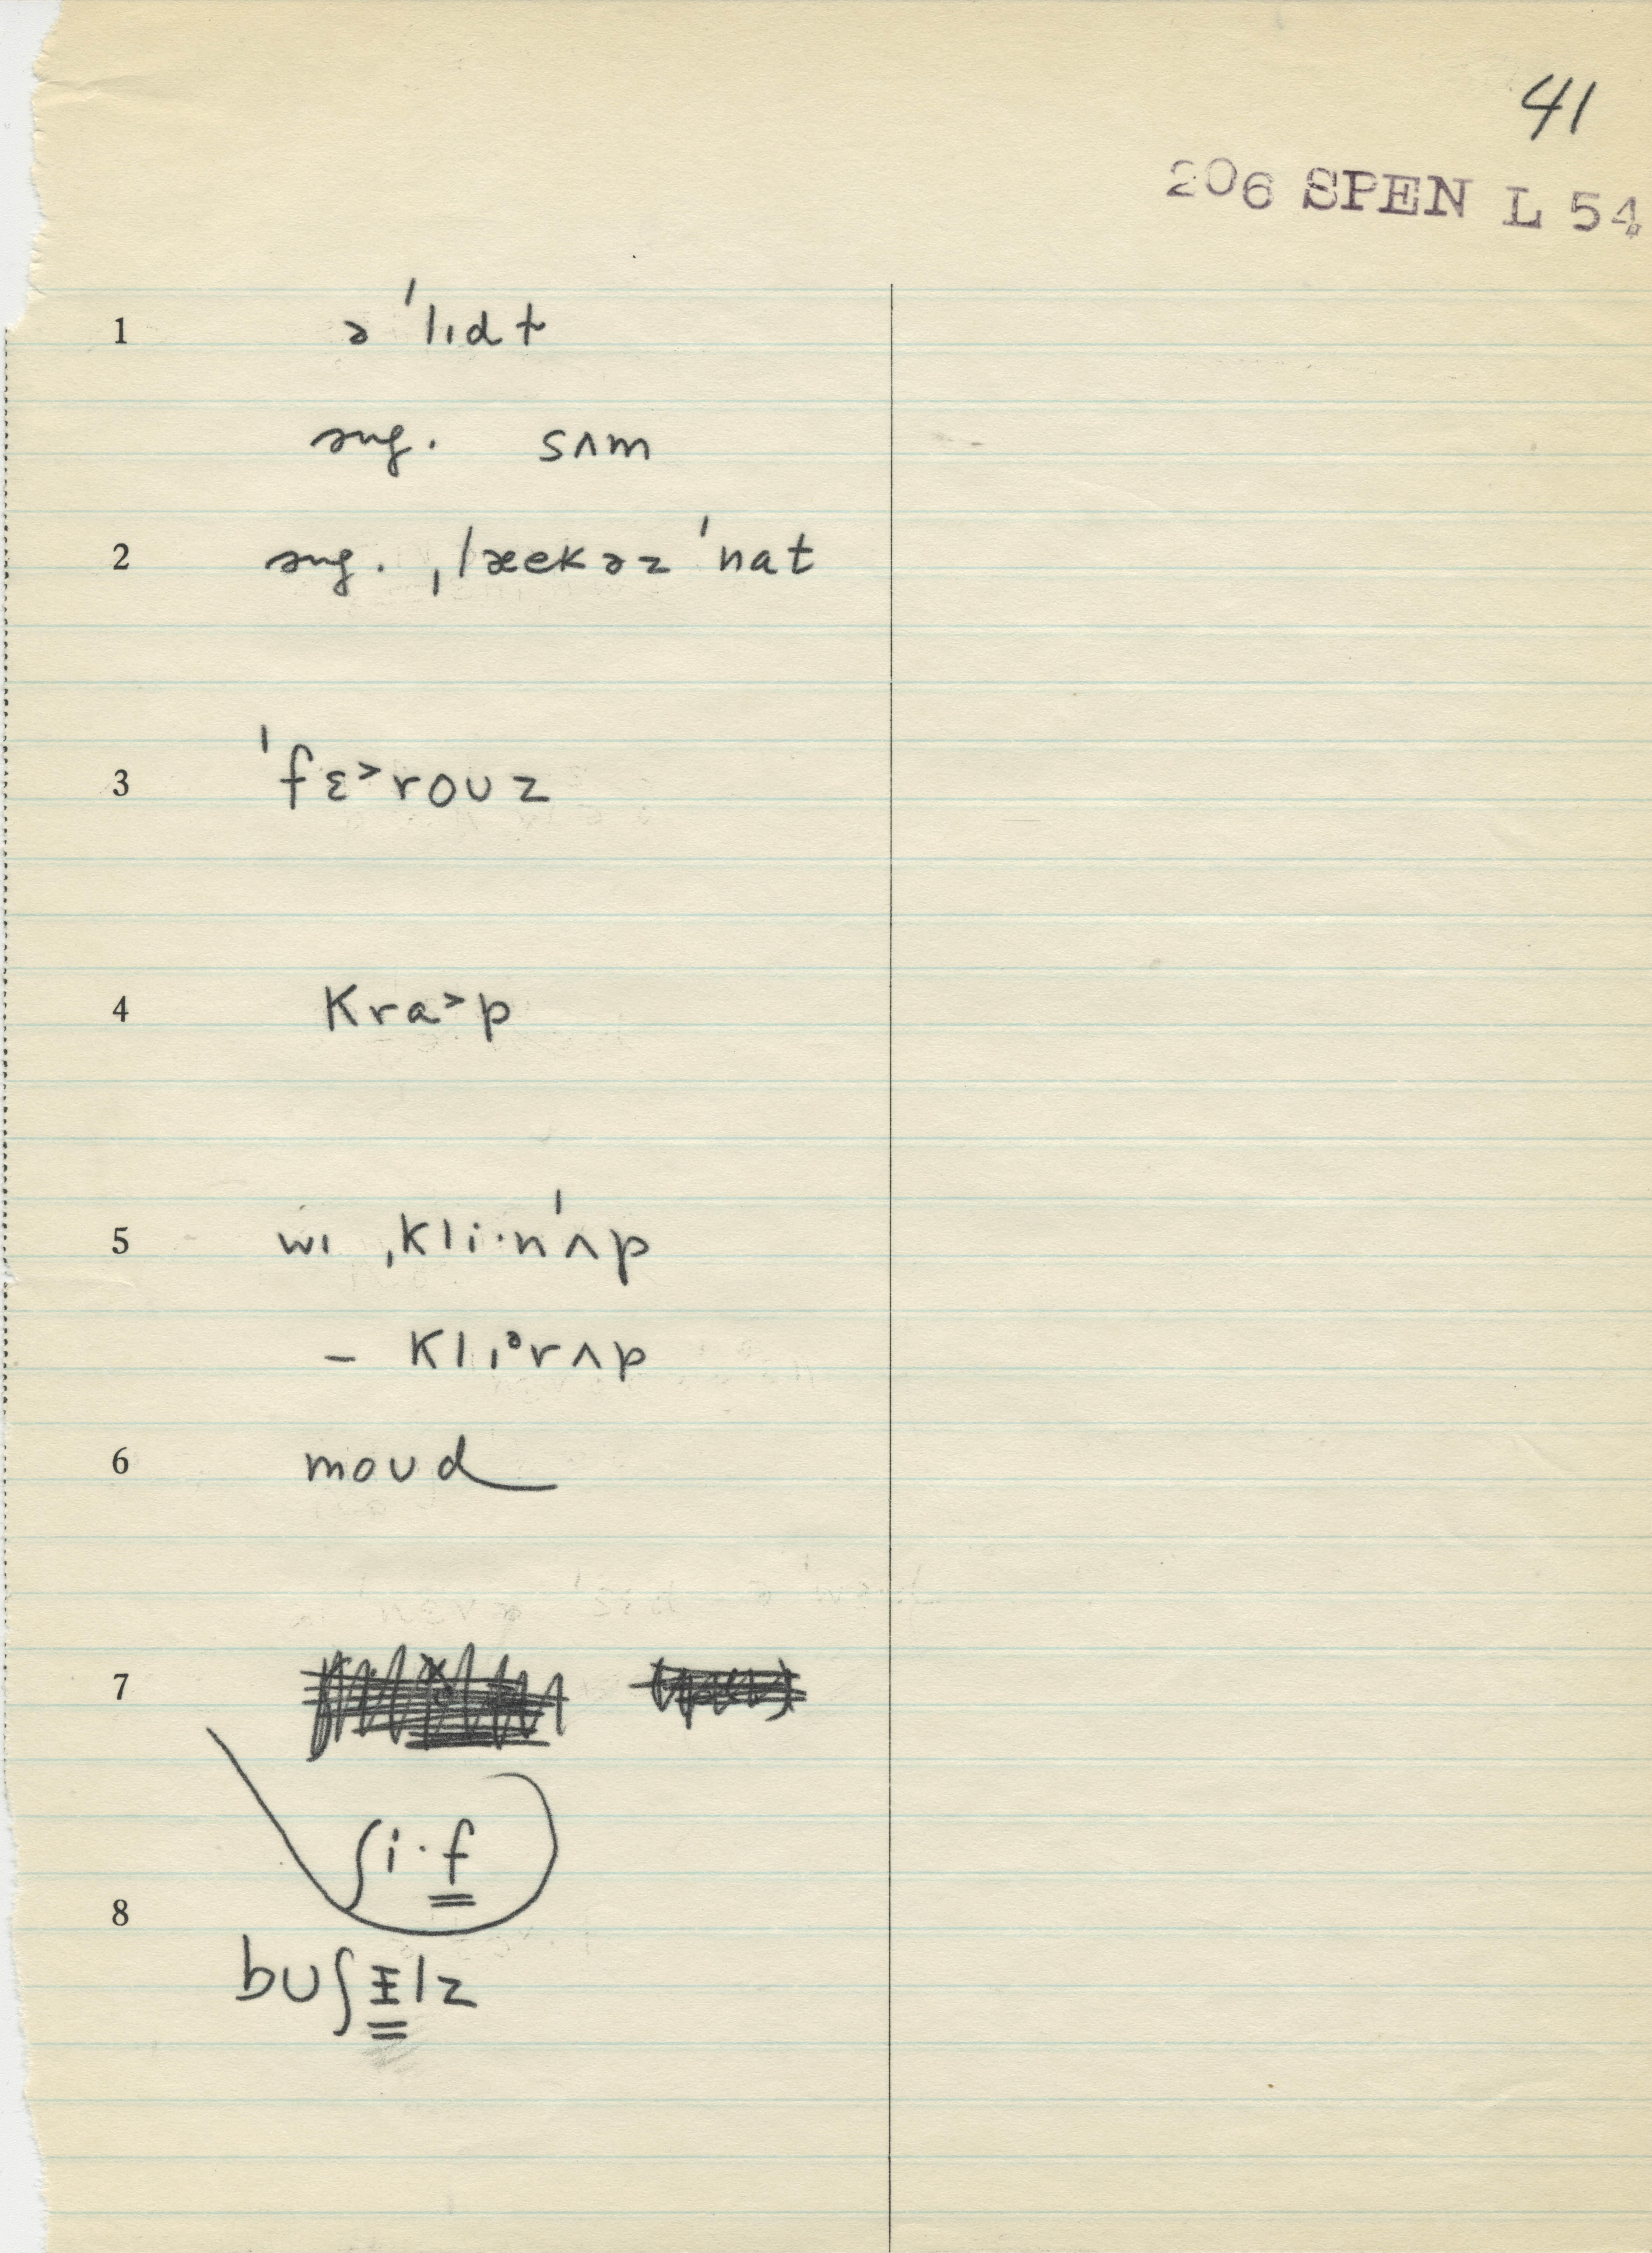 41
206 SPEN L 54
1 ə ˈlɪdt
sug. sʌm
2 sug. ˌlæekəz ˈnat
3 ˈfɛ˃roʊz
4 kra˃p
5 wɪ ˌkli·nˈʌp
– klɪᵊrʌp
6 moʊd
7
ʃi·f
8
bʊʃɪlz